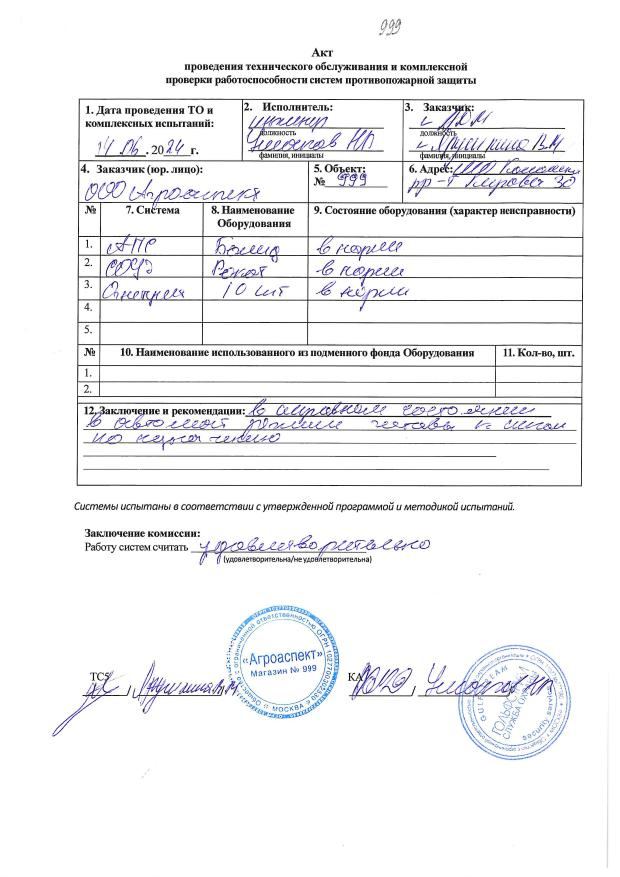 999
Акт
проведения технического обслуживания и комплексной
проверки работоспособности систем противопожарной защиты
1. Дата проведения ТО и
комплексных испытаний:
14.06.2024г.
2. Исполнитель:
инженер
должность
фамилия, инициалы
3. Заказчик:
должность
фамилия, инициалы
4. Заказчик (юр. лицо):
ООО Агроаспект
5. Объект:
№ 999
6. Адрес:
пр-т Кирова 30
№ 7. Система 8. Наименование Оборудования 9. Состояние оборудования (характер неисправности)
1. АПС Болид в норме
2. СОУЭ Рокот в норме
3. Огнетуш 10 шт в норме
4.
5.
№ 10. Наименование использованного из подменного фонда Оборудования 11. Кол-во, шт.
1.
2.
12. Заключение и рекомендации: в исправном состоянии
в
по назначению
Системы испытаны в соответствии с утвержденной программой и методикой испытаний.
Заключение комиссии:
Работу систем считать удовлетворительно
(удовлетворительна/не удовлетворительна)
«Агроаспект»
Магазин № 999
МОСКВА
ТС5
КА
GULFSTREAM
security